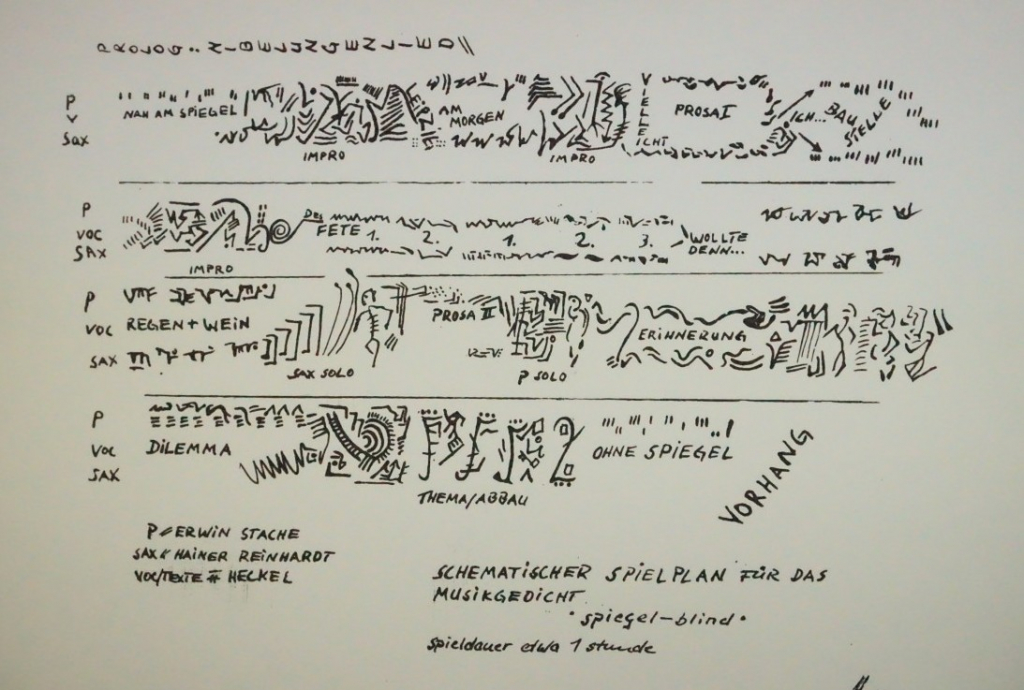 PROLOG: NIBELUNGENLIED //
P
V
SAX
NAH AM SPIEGEL
IMPRO
AM
MORGEN
IMPRO
VIELLEICHT
PROSA I
ICH... BAUSTELLE
P
VOC
SAX
IMPRO
FETE 1. 2. 1. 2. 3.
WOLLTE
DENN...
P
VOC
SAX
REGEN + WEIN
SAX SOLO
PROSA II
P SOLO
ERINNERUNG
P
VOC
SAX
DILEMMA
THEMA/ABBAU
OHNE SPIEGEL
VORHANG
P // ERWIN STACHE
SAX // HAINER REINHARDT
VOC/TEXTE # HECKEL
SCHEMATISCHER SPIELPLAN FÜR DAS
MUSIKGEDICHT
• spiegel-blind •
spieldauer etwa 1 stunde